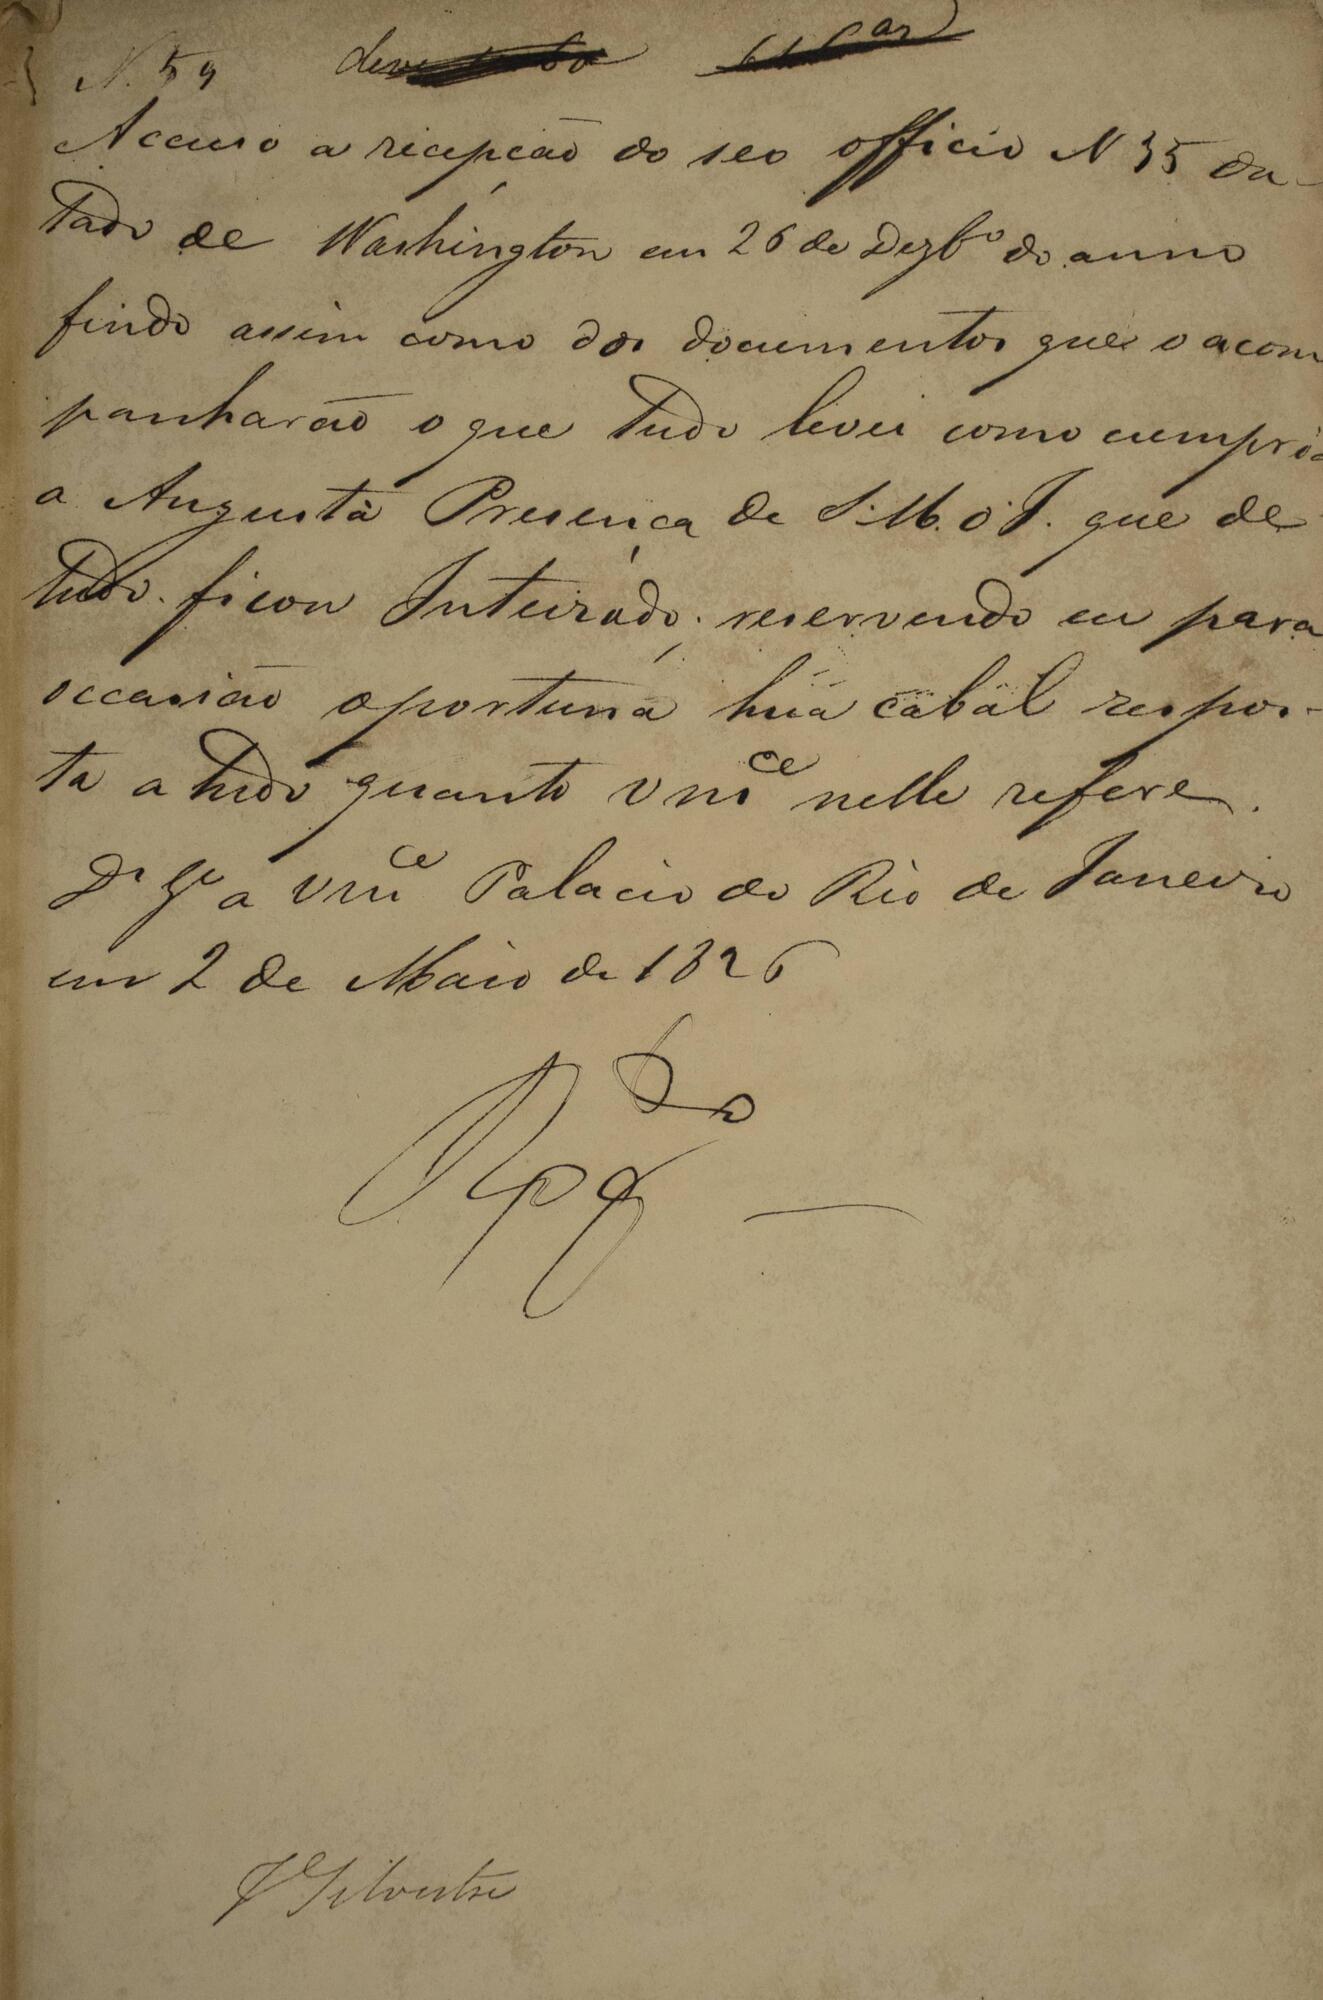 N. 59
Accuso a recepção do seo officio N 35 da-
tado de Washington em 26 de Dezbº do anno
findo assim como dos documentos que o acom
panharão o que tudo levei como cumpria
a Augusta Presença de S. M. o I. que de
tudo ficou Inteirado, reservando eu para
occasião oportuna huã cabal respos-
ta a tudo quanto Vmce nelle refere.
Ds Ge a Vmce Palacio do Rio de Janeiro
em 2 de Maio de 1826
J Silvestre